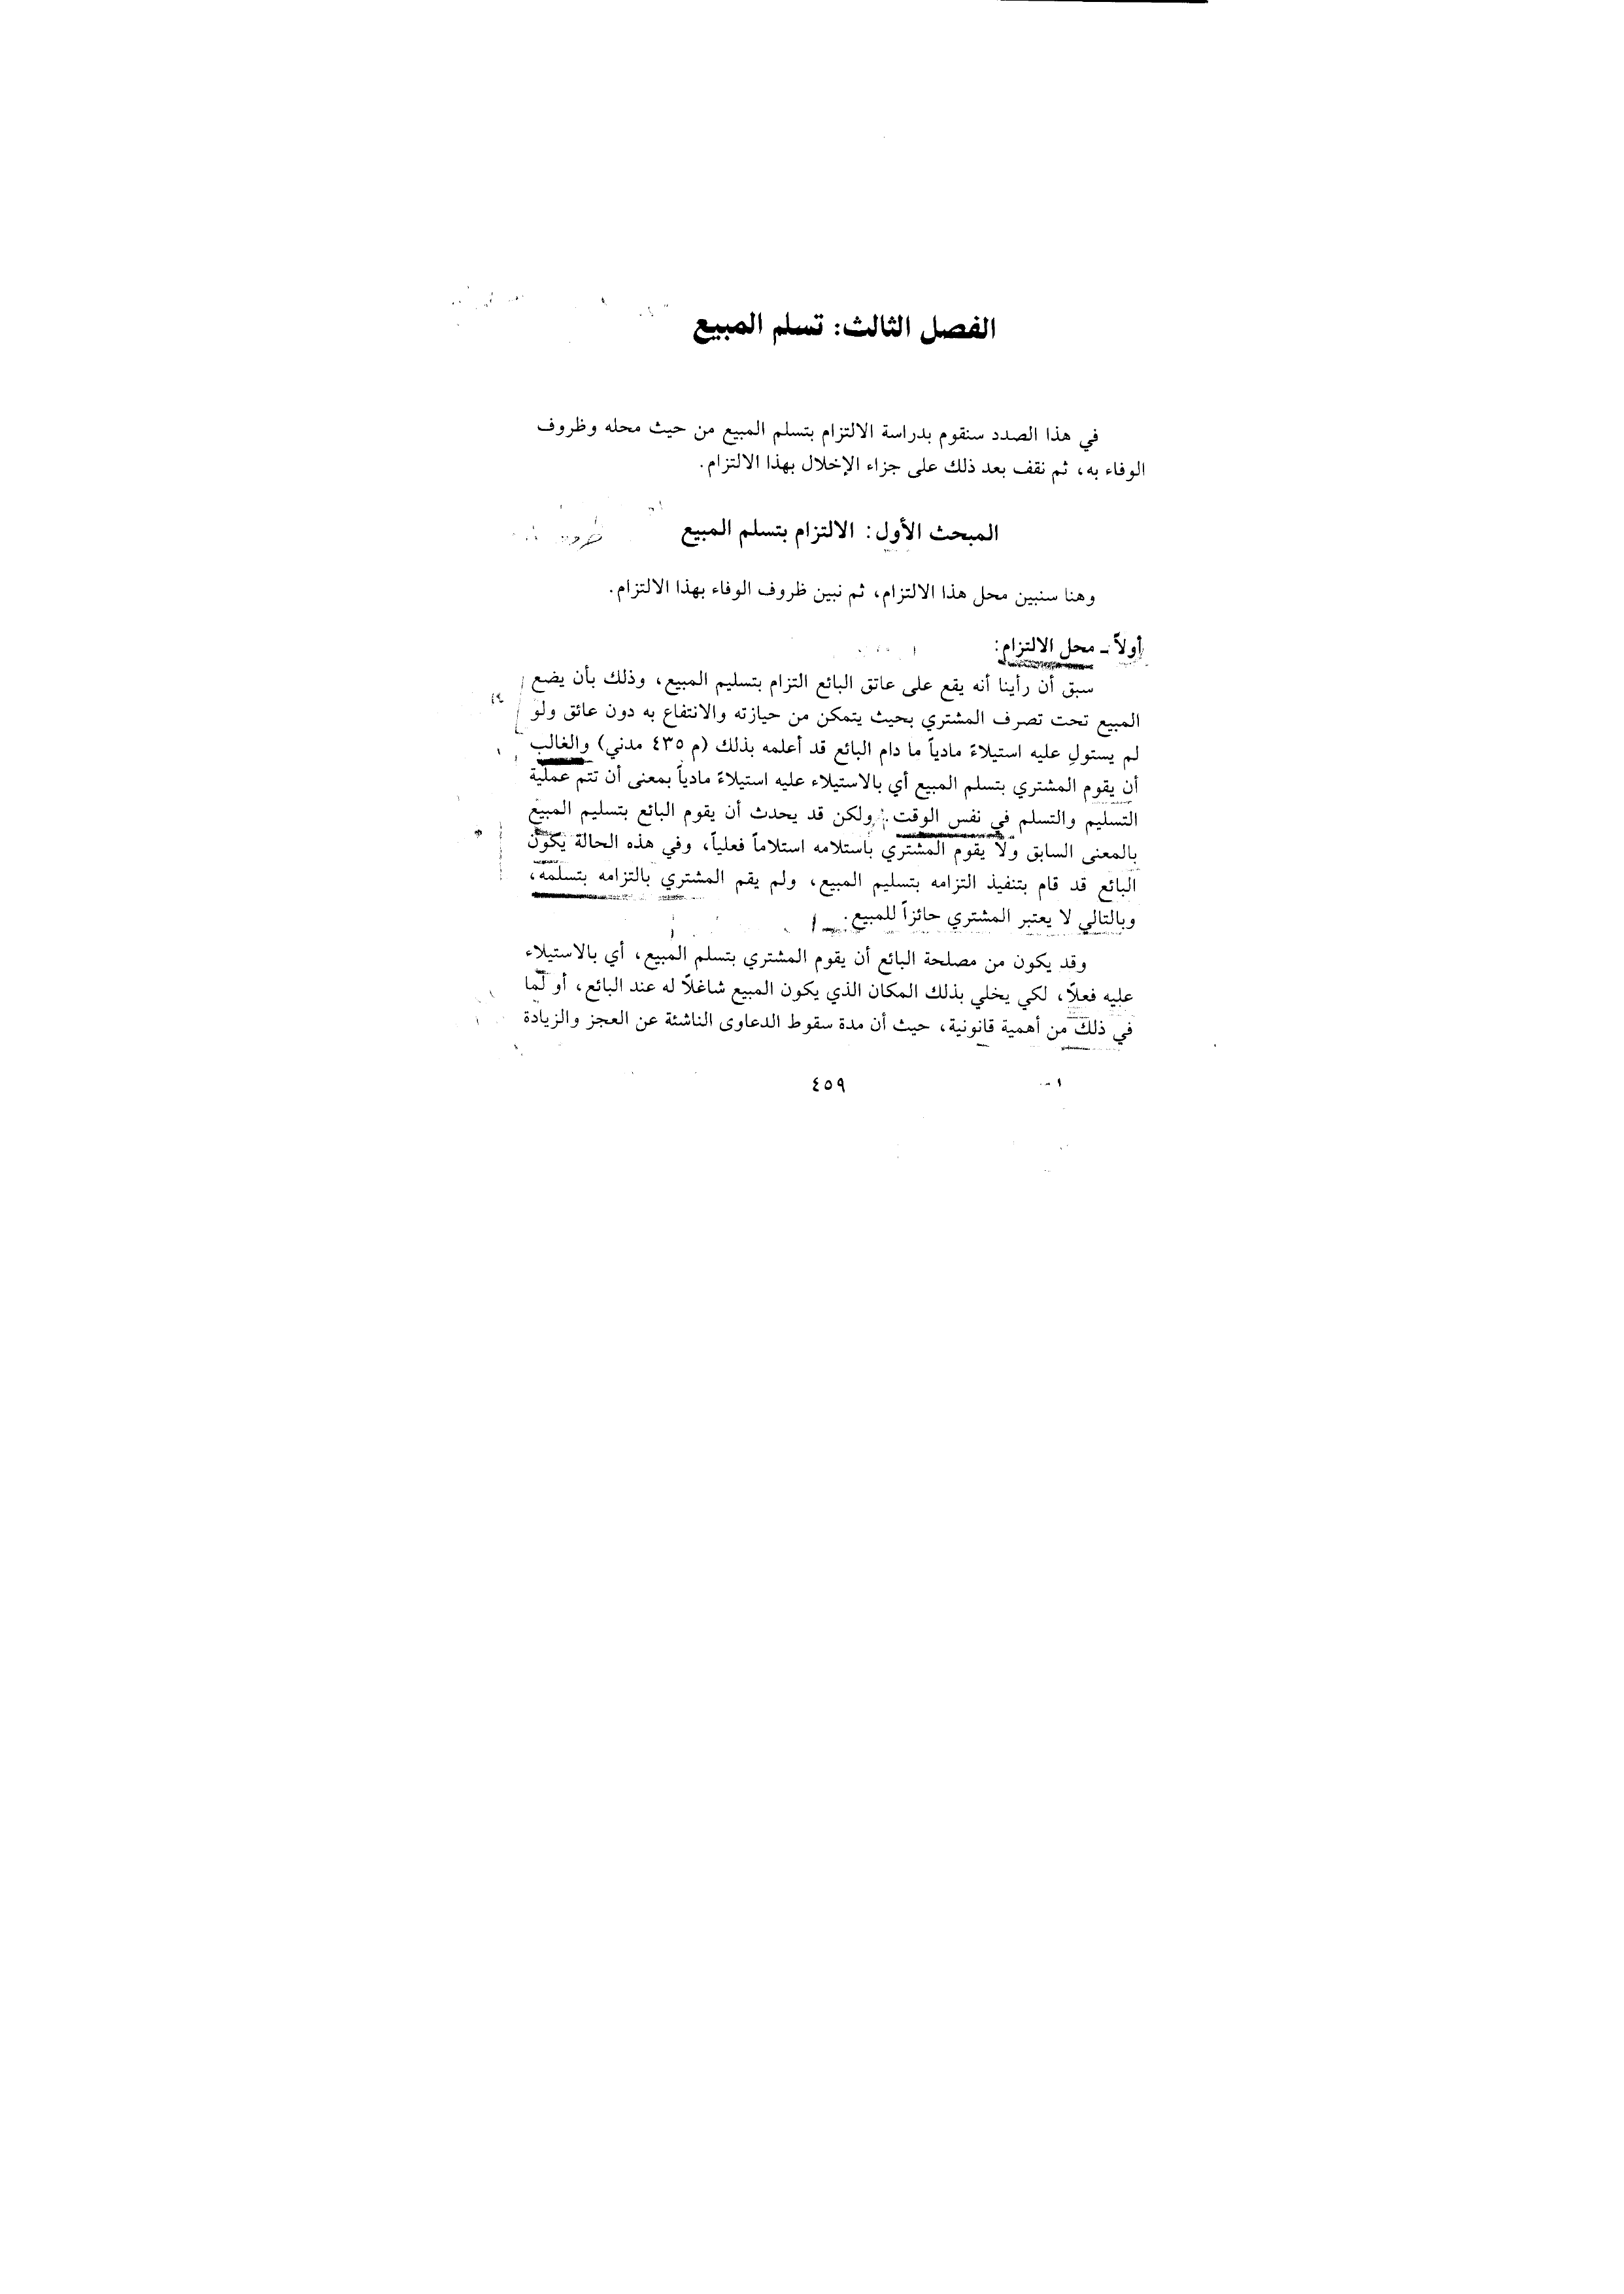 الفصل الثالث: تسلم المبيع
في هذا الصدد سنقوم بدراسة الالتزام بتسلم المبيع من حيث محله وظروف
الوفاء به، ثم نقف بعد ذلك على جزاء الإخلال بهذا الالتزام.
المبحث الأول: الالتزام بتسلم المبيع
وهنا سنبين محل هذا الالتزام، ثم نبين ظروف الوفاء بهذا الالتزام.
أولاً ـ محل الالتزام:
سبق أن رأينا أنه يقع على عاتق البائع التزام بتسليم المبيع، وذلك بأن يضع
المبيع تحت تصرف المشتري بحيث يتمكن من حيازته والانتفاع به دون عائق ولو
لم يستولِ عليه استيلاءً مادياً ما دام البائع قد أعلمه بذلك (م ٤٣٥ مدني) والغالب
أن يقوم المشتري بتسلم المبيع أي بالاستيلاء عليه استيلاءً مادياً بمعنى أن تتم عملية
التسليم والتسلم في نفس الوقت. ولكن قد يحدث أن يقوم البائع بتسليم المبيع
بالمعنى السابق ولا يقوم المشتري باستلامه استلاماً فعلياً، وفي هذه الحالة يكون
البائع قد قام بتنفيذ التزامه بتسليم المبيع، ولم يقم المشتري بالتزامه بتسلمه،
وبالتالي لا يعتبر المشتري حائزاً للمبيع.
وقد يكون من مصلحة البائع أن يقوم المشتري بتسلم المبيع، أي بالاستيلاء
عليه فعلاً، لكي يخلي بذلك المكان الذي يكون المبيع شاغلاً له عند البائع، أو لما
في ذلك من أهمية قانونية، حيث أن مدة سقوط الدعاوى الناشئة عن العجز والزيادة
٤٥٩